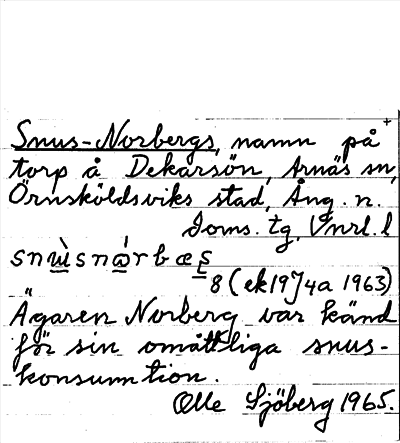 Snus-Norbergs, namn på +
torp å Dekarsön, Arnäs sn,
Örnsköldsviks stad, Ång. n.
Joms. tg, Vnrl. l
snu̠̇̀snȧ̠rbæş
8 (ek 1974a 1963)
Ägaren Norberg var känd
för sin omåttliga snus-
konsumtion.
Olle Sjöberg 1965.